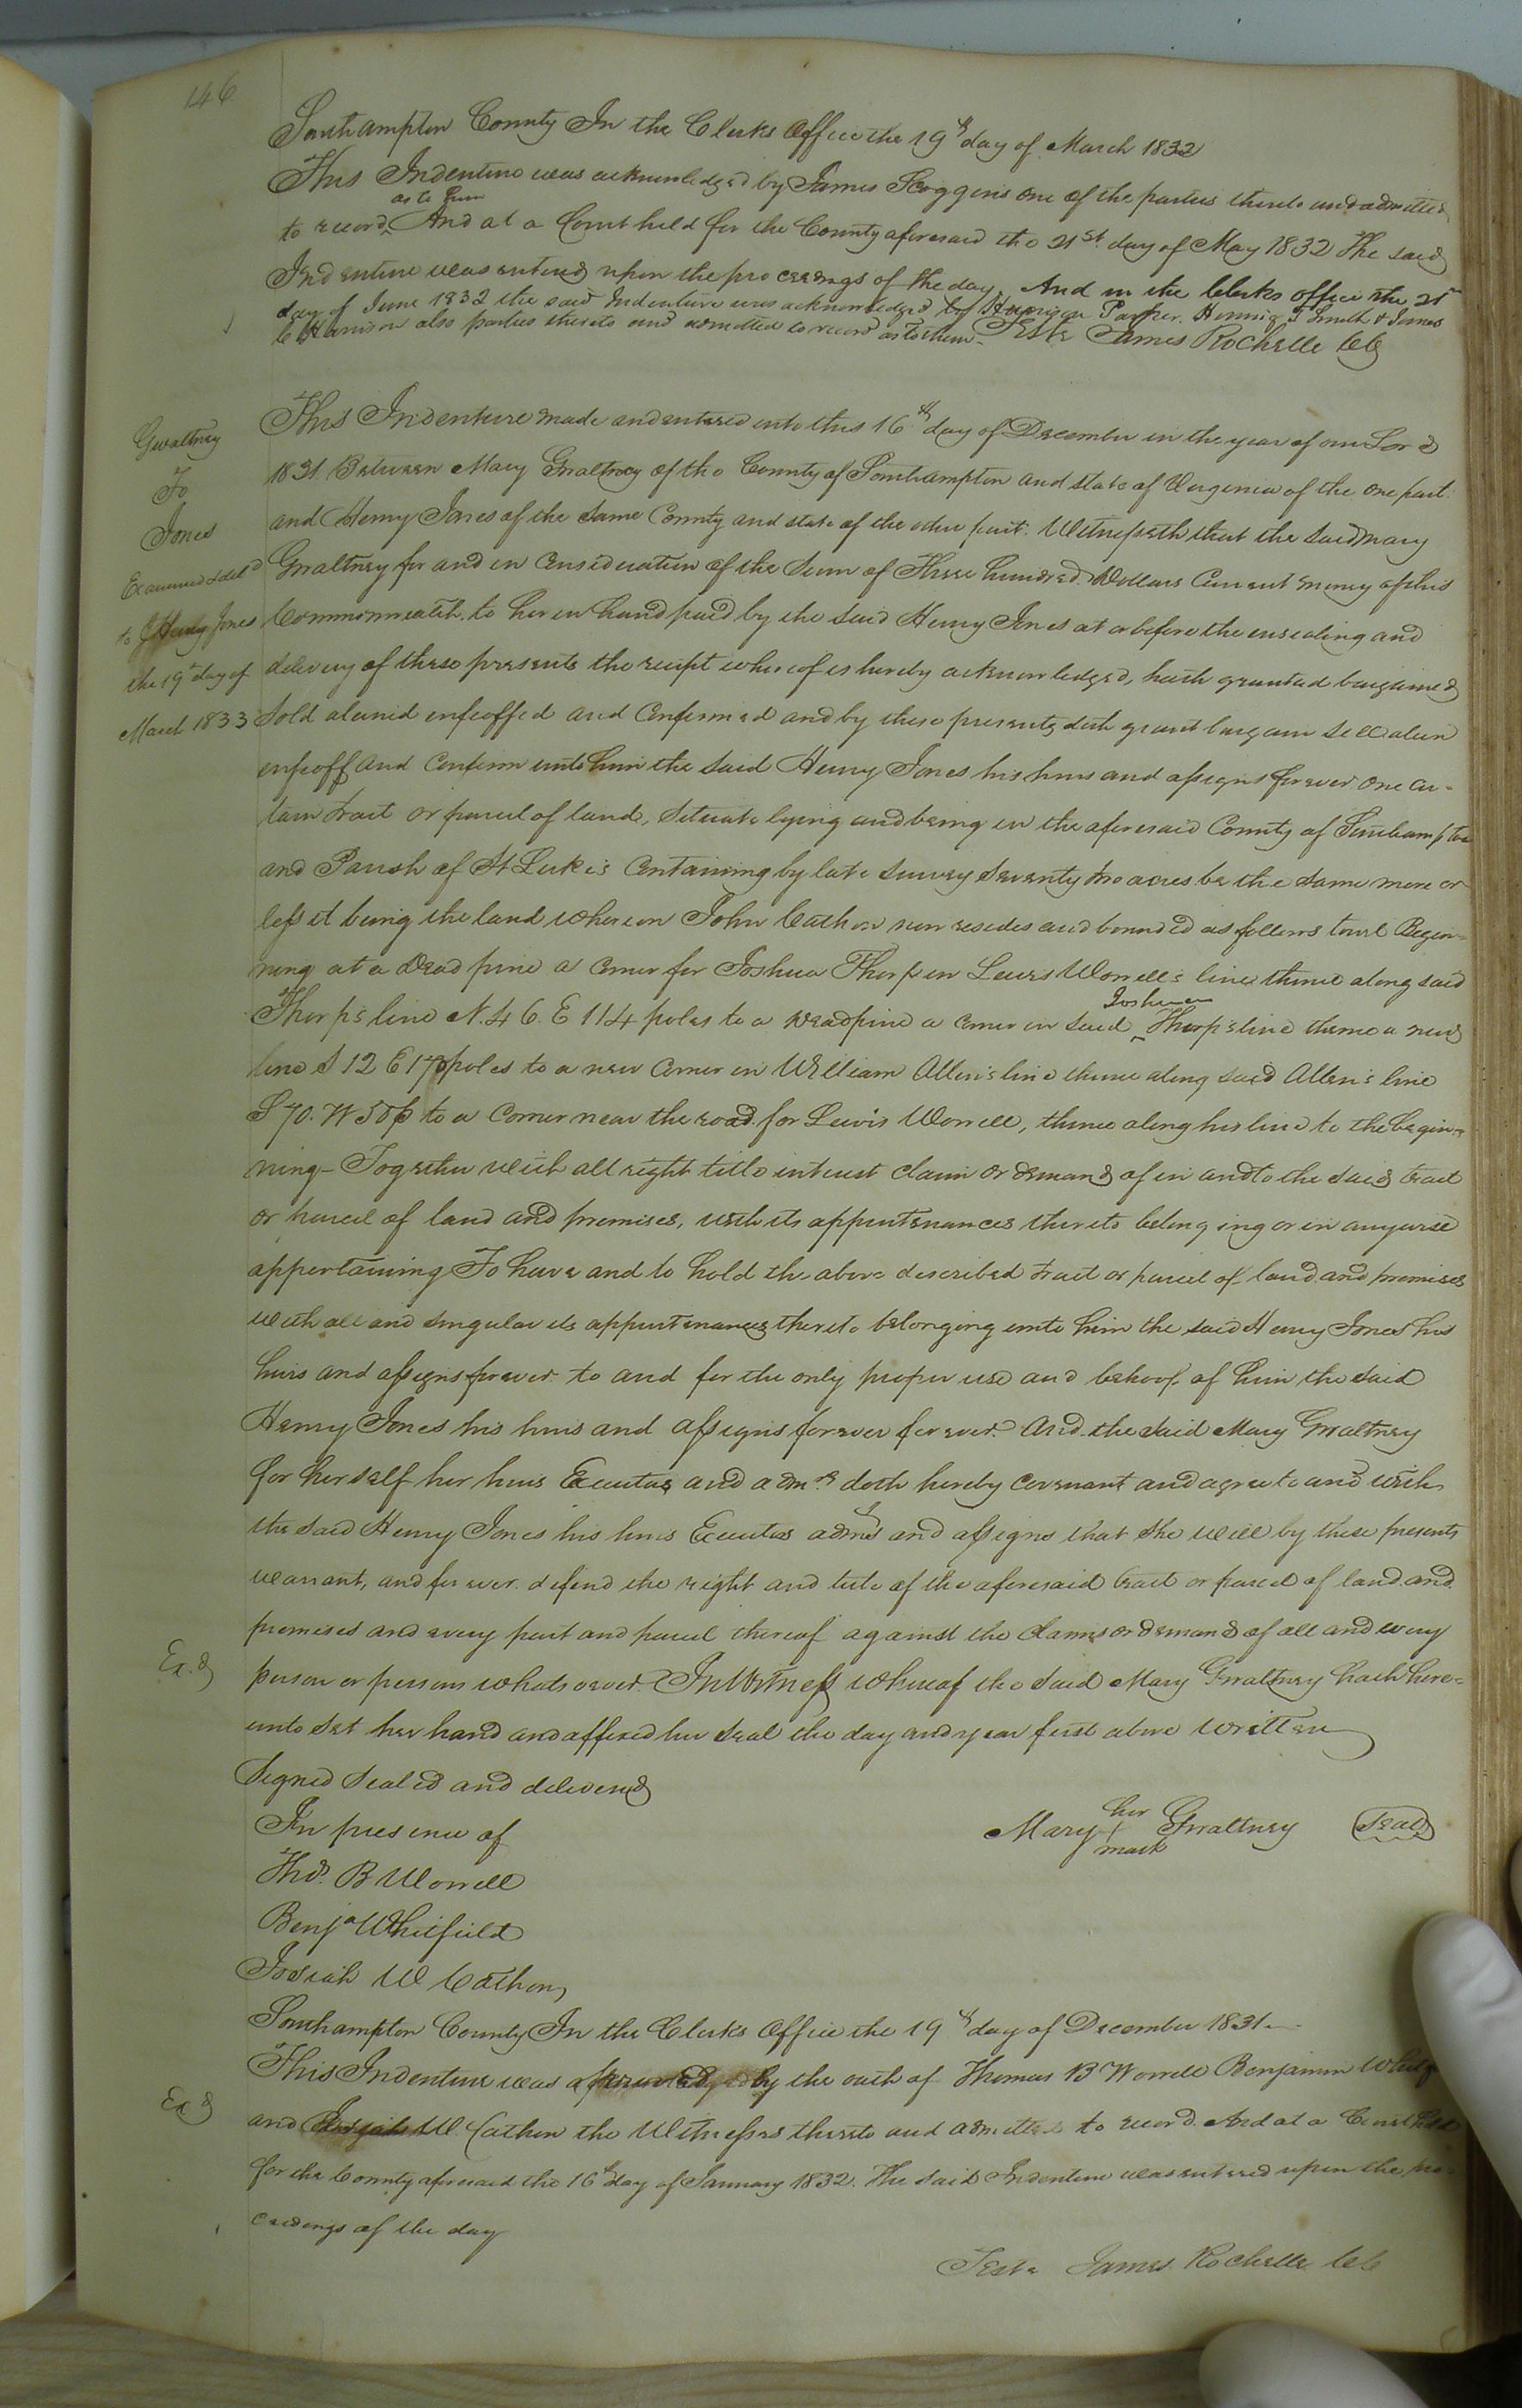 146
Southampton County In the Clerks Office the 19th day of March 1832
This Indenture was acknowledged by James Scoggins one of the parties thereto and admitted
as to him
to record And at a Court held for the County aforesaid the 21st day of May 1832 The said
Indenture was entered upon the proceedings of the day. And in the Clerks office the 21st
day of June 1832 the said Indenture was acknowledged by Harrison Parker. Henning T Smith & James
C Harrison also parties thereto and admitted to record as to them - Teste James Rochelle CC
Gwaltney
To
Jones
Examined & deld
to J Henry Jones
the 19th day of
March 1833
This Indenture made and entered into this 16th day of December in the year of our Lord
1831 Between Mary Gwaltney of the County of Southampton and state of Virginia of the one part
and Henry Jones of the same County and state of the other part. Witnesseth that the said Mary
Gwaltney for and in Consideration of the Sum of Three hundred Dollars Current money of this
Commonwealth. to her in hand paid by the said Henry Jones at or before the ensealing and
delivery of these presents the receipt whereof is hereby acknowledged, hath granted bargained
Sold aliened enfeoffed and Confirmed and by these presents doth grant bargain sell alien
enfeoff and Confirm unto him the said Henry Jones his heirs and assigns forever one cer-
tain tract or parcel of land, Situate lying and being in the aforesaid County of Southampton
and Parish of St Luke's Containing by late survey seventy two acres be the same more or
less it being the land whereon John Cathon now resides and bounded as follows towit Begin-
ning at a Dead pine a Corner for Joshua Thorp in Lewis Worrell's line thence along said
Joshua
Thorp's line N. 46. E 114 poles to a dead pine a Corner in said Thorp's line thence a new
line S 12 E 170 poles to a new Corner in William Allen's line thence along said Allen's line
S 70. W 50 p to a Corner near the road for Lewis Worrell, thence along his line to the begin-
ning - Together with all right title interest claim or demand of in and to the said tract
or parcel of land and premises, with its appurtenances thereto belonging or in anywise
appertaining To have and to hold the above described tract or parcel of land and premises
with all and singular its appurtenances thereto belonging unto him the said Henry Jones his
heirs and assigns forever to and for the only proper use and behoof of him the said
Henry Jones his heirs and assigns forever forever. And the said Mary Gwaltney
for herself her heirs Executors and admrs doth hereby Covenant and agree to and with
the said Henry Jones his heirs Executors admrs and assigns that she will by these presents
warrant, and forever defend the right and title of the aforesaid tract or parcel of land and
premises and every part and parcel thereof against the claims or demands of all and every
Ex. d
person or persons whatsoever. In Witness whereof the said Mary Gwaltney hath here-
unto set her hand and affixed her seal the day and year first above written
Signed Sealed and delivered
In presence of
her
Mary + Gwaltney Seal
mark
Thos. B Worrell
Benja Whitfield
Josiah W Cathon
Southampton County In the Clerks Office the 19th day of December 1831 -
This Indenture was acknowledged by the oath of Thomas B Worrell Benjamin Whitf
Ex d
and Josiah W. Cathon the Witnesses thereto and admitted to record. And at a Court held
for the County aforesaid the 16th day of January 1832. The said Indenture was entered upon the pro-
ceedings of the day
Teste James Rochelle CC